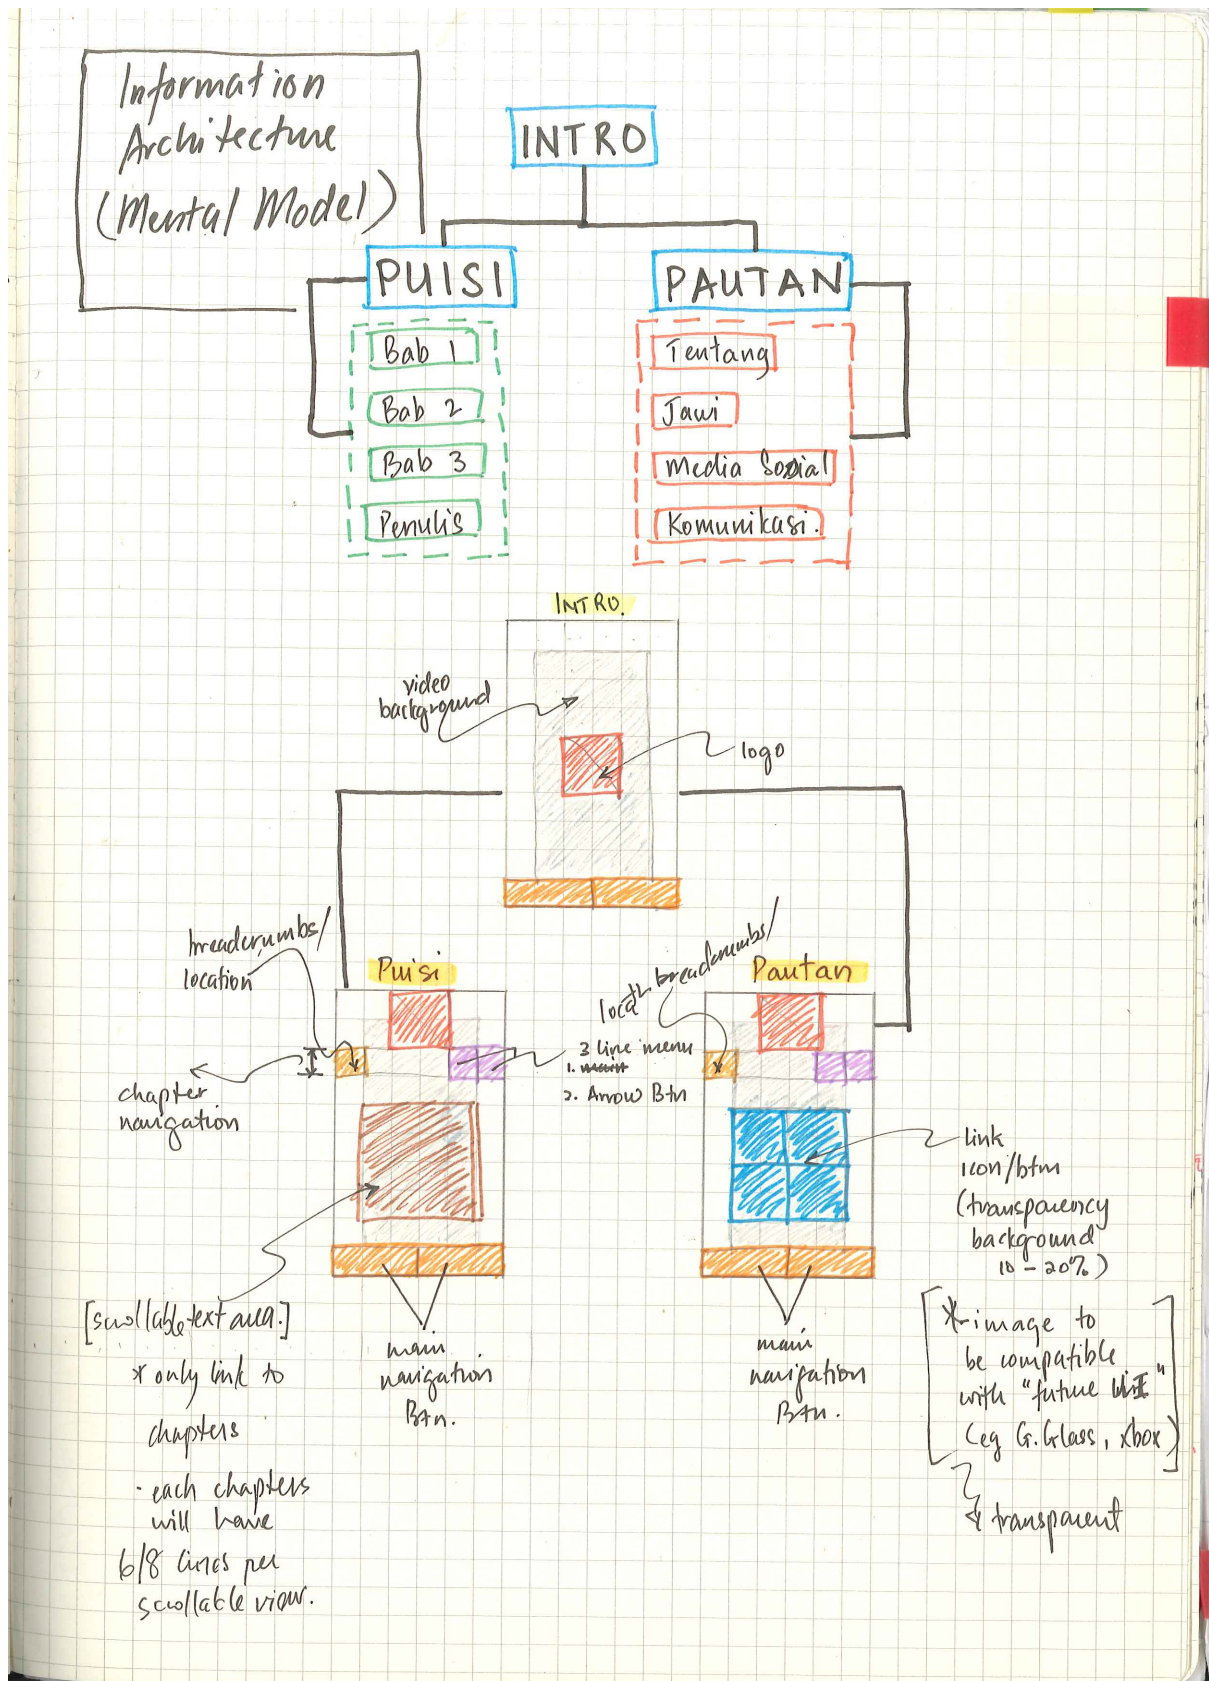 Information
Architecture
(Mental Model)
INTRO
PUISI
Bab 1
Bab 2
Bab 3
Penulis
PAUTAN
Tentang
Jawi
Media Sosial
Komunikasi.
INTRO.
video
background
logo
breadcrumbs/
location
Puisi
chapter
navigation
3 line menu
1.
2. Arrow Btn
breadcrumbs/
Pautan
link
icon/btn
(transparency
background
10-20%)
[scrollable text area.]
* only link to
chapters
· each chapters
will have
6/8 lines per
scrollable view.
main
navigation
Btn.
main
navigation
Btn.
* image to
be compatible
with "future UI"
(eg G.Glass, xbox)
transparent